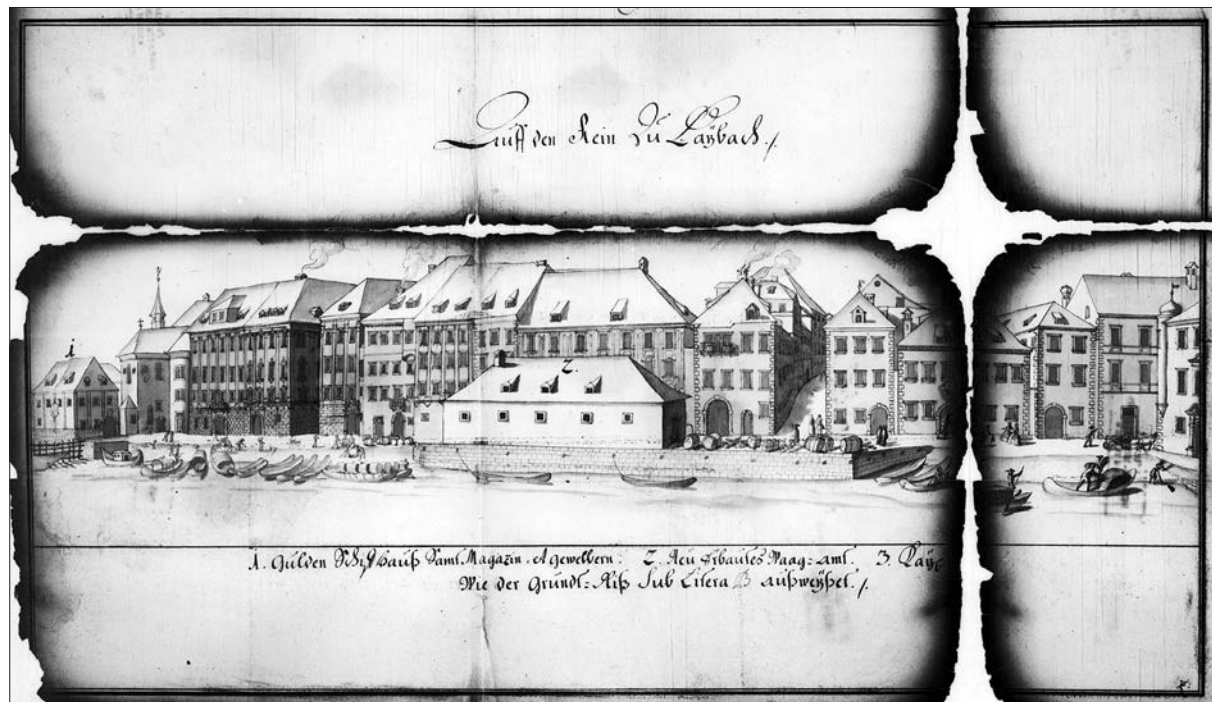 Auff den Rein Zu Laÿbach ./.
1.
2.
1. Gulden Schif hauß Samt Magazin, et gewelbern. 2. Neu Erbautes Waag=amt. 3. Laÿb
Wie der Grundt=Riß Sub Litera B außweÿset ./.